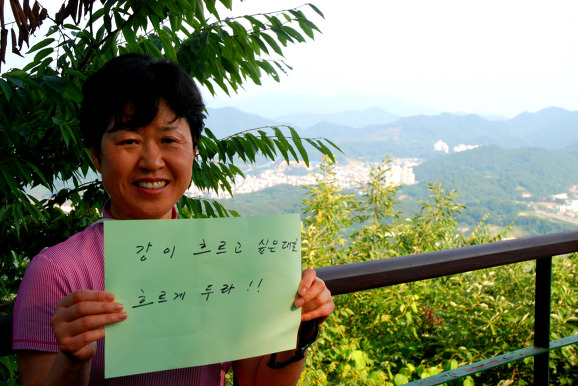 강이 흐르고 싶은대로
흐르게 두라!!